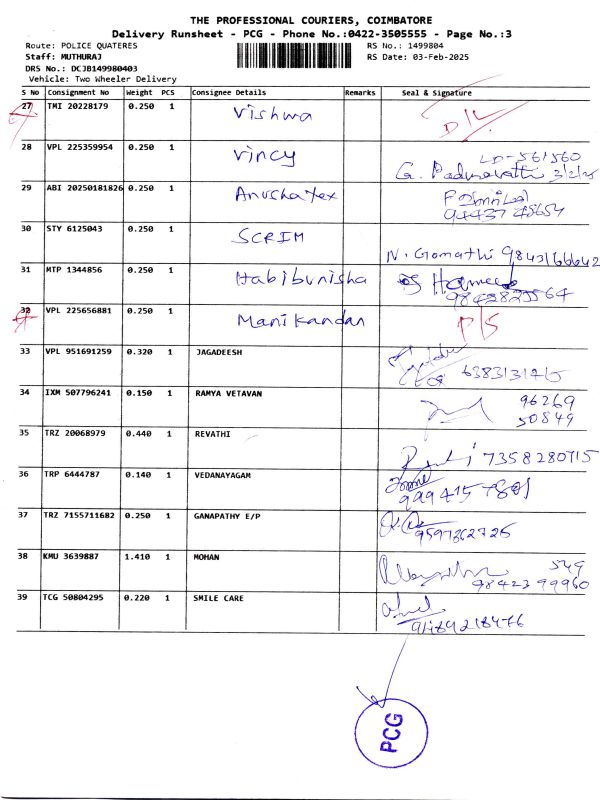 THE PROFESSIONAL COURIERS, COIMBATORE
Delivery Runsheet - PCG - Phone No.:0422-3505555 - Page No.:3
Route: POLICE QUATERES RS No.: 1499804
Staff: MUTHURAJ RS Date: 03-Feb-2025
DRS No.: DCJB149980403
Vehicle: Two Wheeler Delivery
S No Consignment No Weight PCS Consignee Details Remarks Seal & Signature
27 TMI 20228179 0.250 1 Vishwa D/L
28 VPL 225359954 0.250 1 Vincy LD-561560
G. Padmavathi 3/2/25
29 ABI 20250181826 0.250 1 Anusha tex
30 STY 6125043 0.250 1 SCRIM N. Gomathi 9843166642
31 MTP 1344856 0.250 1 Habibunisha Hameed
32 VPL 225656881 0.250 1 Manikandan P/S
33 VPL 951691259 0.320 1 JAGADEESH
34 IXM 507796241 0.150 1 RAMYA VETAVAN 96269
50849
35 TRZ 20068979 0.440 1 REVATHI 7358280715
36 TRP 6444787 0.140 1 VEDANAYAGAM
37 TRZ 7155711682 0.250 1 GANAPATHY E/P 9597362725
38 KMU 3639887 1.410 1 MOHAN 549
98423 99960
39 TCG 50804295 0.220 1 SMILE CARE
PCG